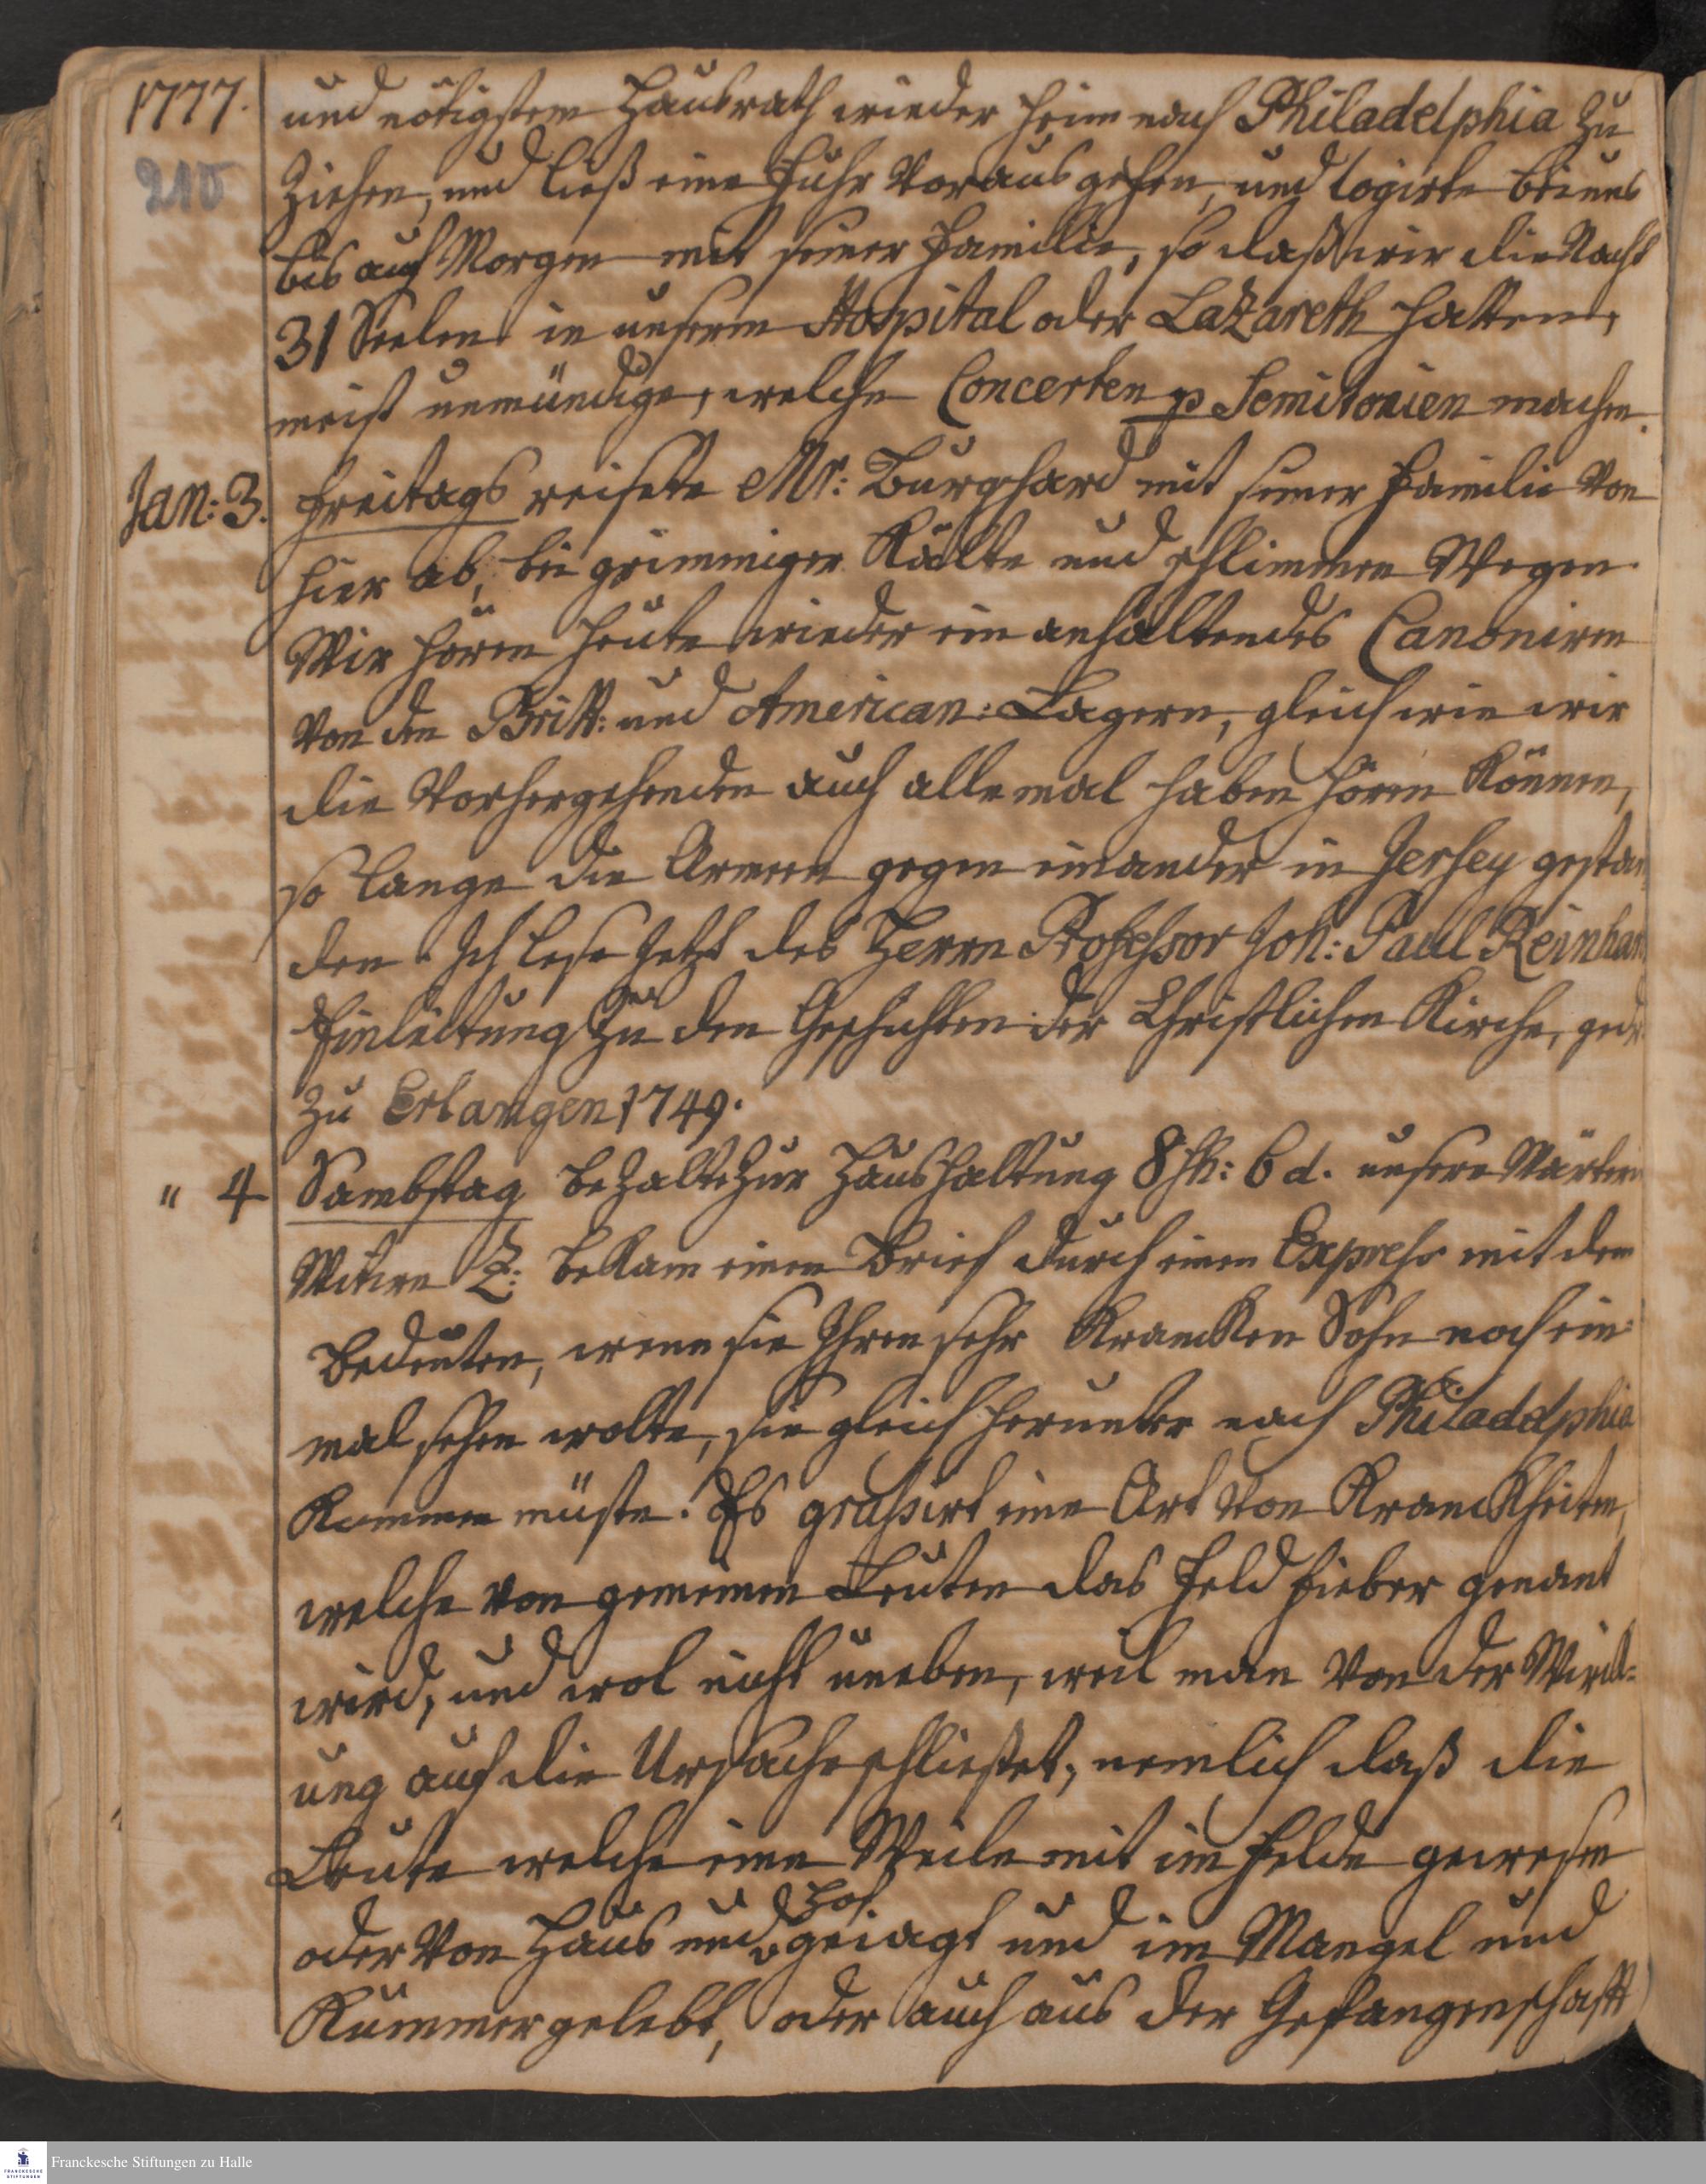 1777. und nötigstem Hausrath wieder heim nach Philadelphia zu
210 ziehen, und ließ eine Fuhr voraus gehen, und logirte bei uns
bis auf Morgen mit seiner Familie, so daß wir die Nacht
31 Seelen in unserm Hospital oder Lazareth hatten,
meist unmündige, welche Concerten p Semitonien machen.
Jan: 3. Freitags reisete Mr: Burghard mit seiner Familie von
hier ab, bei grimmiger Kälte und schlimmen Wegen.
Wir hören heute wieder ein anhaltendes Canoniren
von den Britt: und American: Lagern, gleich wie wir
die vorhergehenden auch allemal haben hören können,
so lange die Armeen gegen einander in Jersey gestan
den. Ich lese jetzt des Herrn Professor Joh: Paul Reinhard
Einleitung zu den Geschichten der Christlichen Kirche, gedr.
zu Erlangen 1749.
" 4 Sambstag bezalte zur Haushaltung 8 sh: 6 d. unsere Wärterin
Witwe Z: bekam einen Brief durch einen Express mit dem
Bedeuten, wenn sie Ihren sehr krancken Sohn noch ein=
mal sehen wolte, sie gleich herunter nach Philadelphia
kommen müste. Es grassirt eine Art von Kranckheiten,
welche von gemeinen Leuten das Feld fieber genant
wird, und wol nicht uneben, weil man von der Wirck=
ung auf die Ursache schließet, nemlich daß die
Leute welche eine Weile mit im Felde gewesen
oder von Haus und Hof gejagt und im Mangel und
Kummer gelebt, oder auch aus der Gefangenschafft
Franckesche Stiftungen zu Halle
FRANCKESCHE STIFTUNGEN